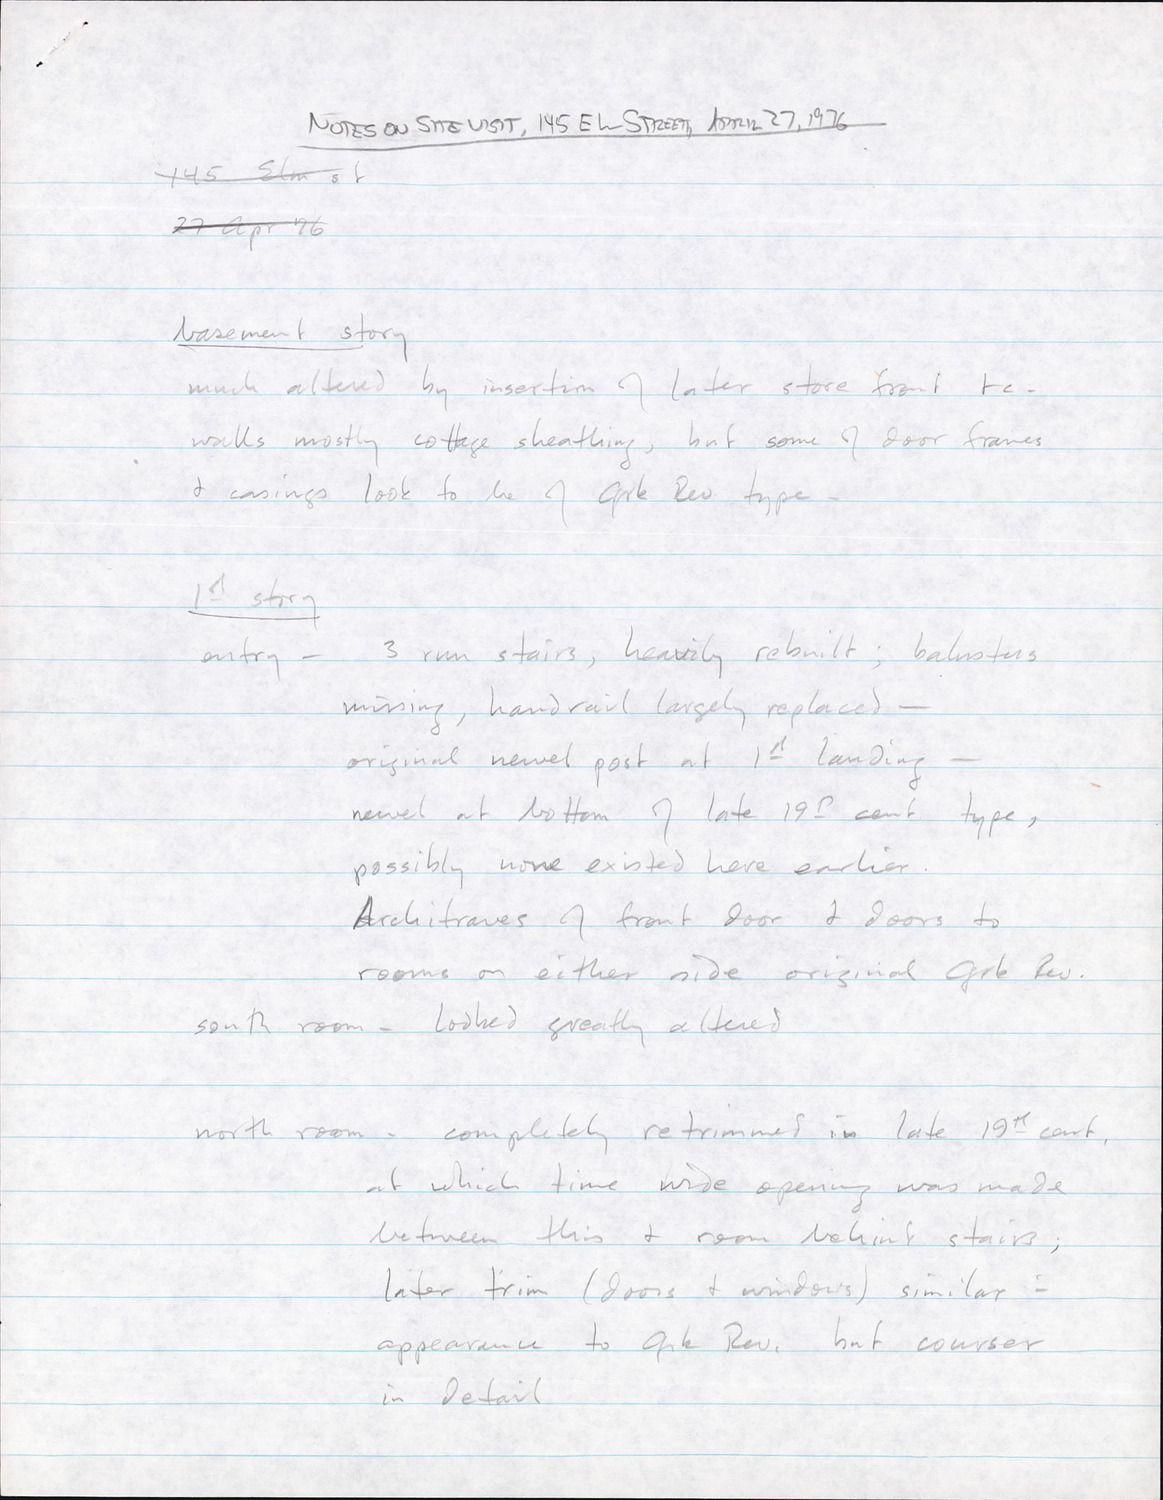 NOTES ON SITE VISIT, 145 Elm STREET, APRIL 27, 1976
145 Elm st
27 Apr 76
basement story
much altered by insertion of later store front etc.
walls mostly cottage sheathing, but some of door frames
& casings look to be of Grk Rev type -
1st story
entry - 3 run stairs, heavily rebuilt; balusters
missing, handrail largely replaced —
original newel post at 1st landing —
newel at bottom of late 19th cent. type,
possibly none existed here earlier.
Architraves of front door & doors to
rooms on either side original Grk Rev.
south room - looked greatly altered
north room - completely retrimmed in late 19th cent,
at which time wide opening was made
between this & room behind stairs;
later trim (doors & windows) similar in
appearance to Grk Rev. but courser
in detail